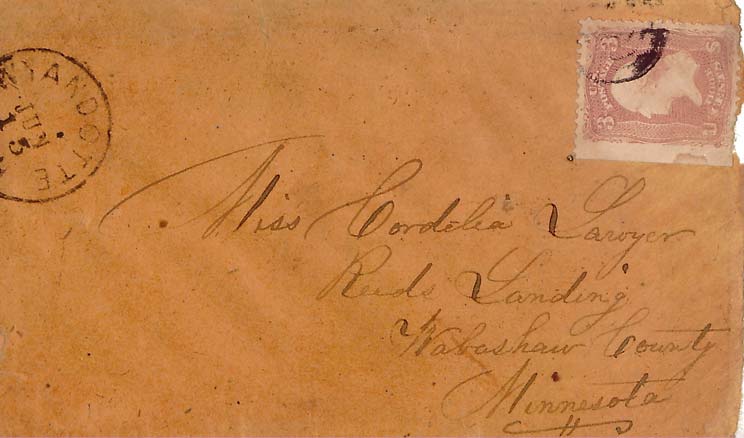 WYANDOTTE
JUN
15
3 CENTS 3
U.S. POSTAGE
Miss Cordelia Lawyer
Reeds Landing
Wabashaw County
Minnesota